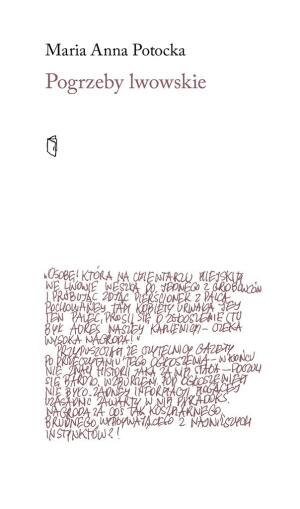 Maria Anna Potocka
Pogrzeby lwowskie
„OSOBĘ! KTÓRA NA CMENTARZU MIEJSKIM
WE LWOWIE WESZŁA DO JEDNEGO Z GROBOWCÓW
I PRÓBUJĄC ZDJĄĆ PIERŚCIONEK Z PALCA
POCHOWANEJ TAM KOBIETY URWAŁA JEJ
TEN PALEC, PROSI SIĘ O ZGŁOSZENIE (TU
BYŁ ADRES NASZEJ KAMIENICY) – CZEKA
WYSOKA NAGRODA!"
PRZYPUSZCZAM ŻE CZYTELNICY GAZETY
PO PRZECZYTANIU TEGO OGŁOSZENIA – W KOŃCU
NIE ZNALI HISTORII JAKA ZA NIM STAŁA –
SIĘ BARDZO WZBURZENI. POD OGŁOSZENIEM
NIE BYŁO ŻADNEJ INFORMACJI MOGĄCEJ
UZASADNIĆ ZAWARTY W NIM PARADOKS.
NAGRODA ZA COŚ TAK KOSZMARNEGO,
BRUDNEGO, WYPŁYWAJĄCEGO Z NAJNIŻSZYCH
INSTYNKTÓW?!